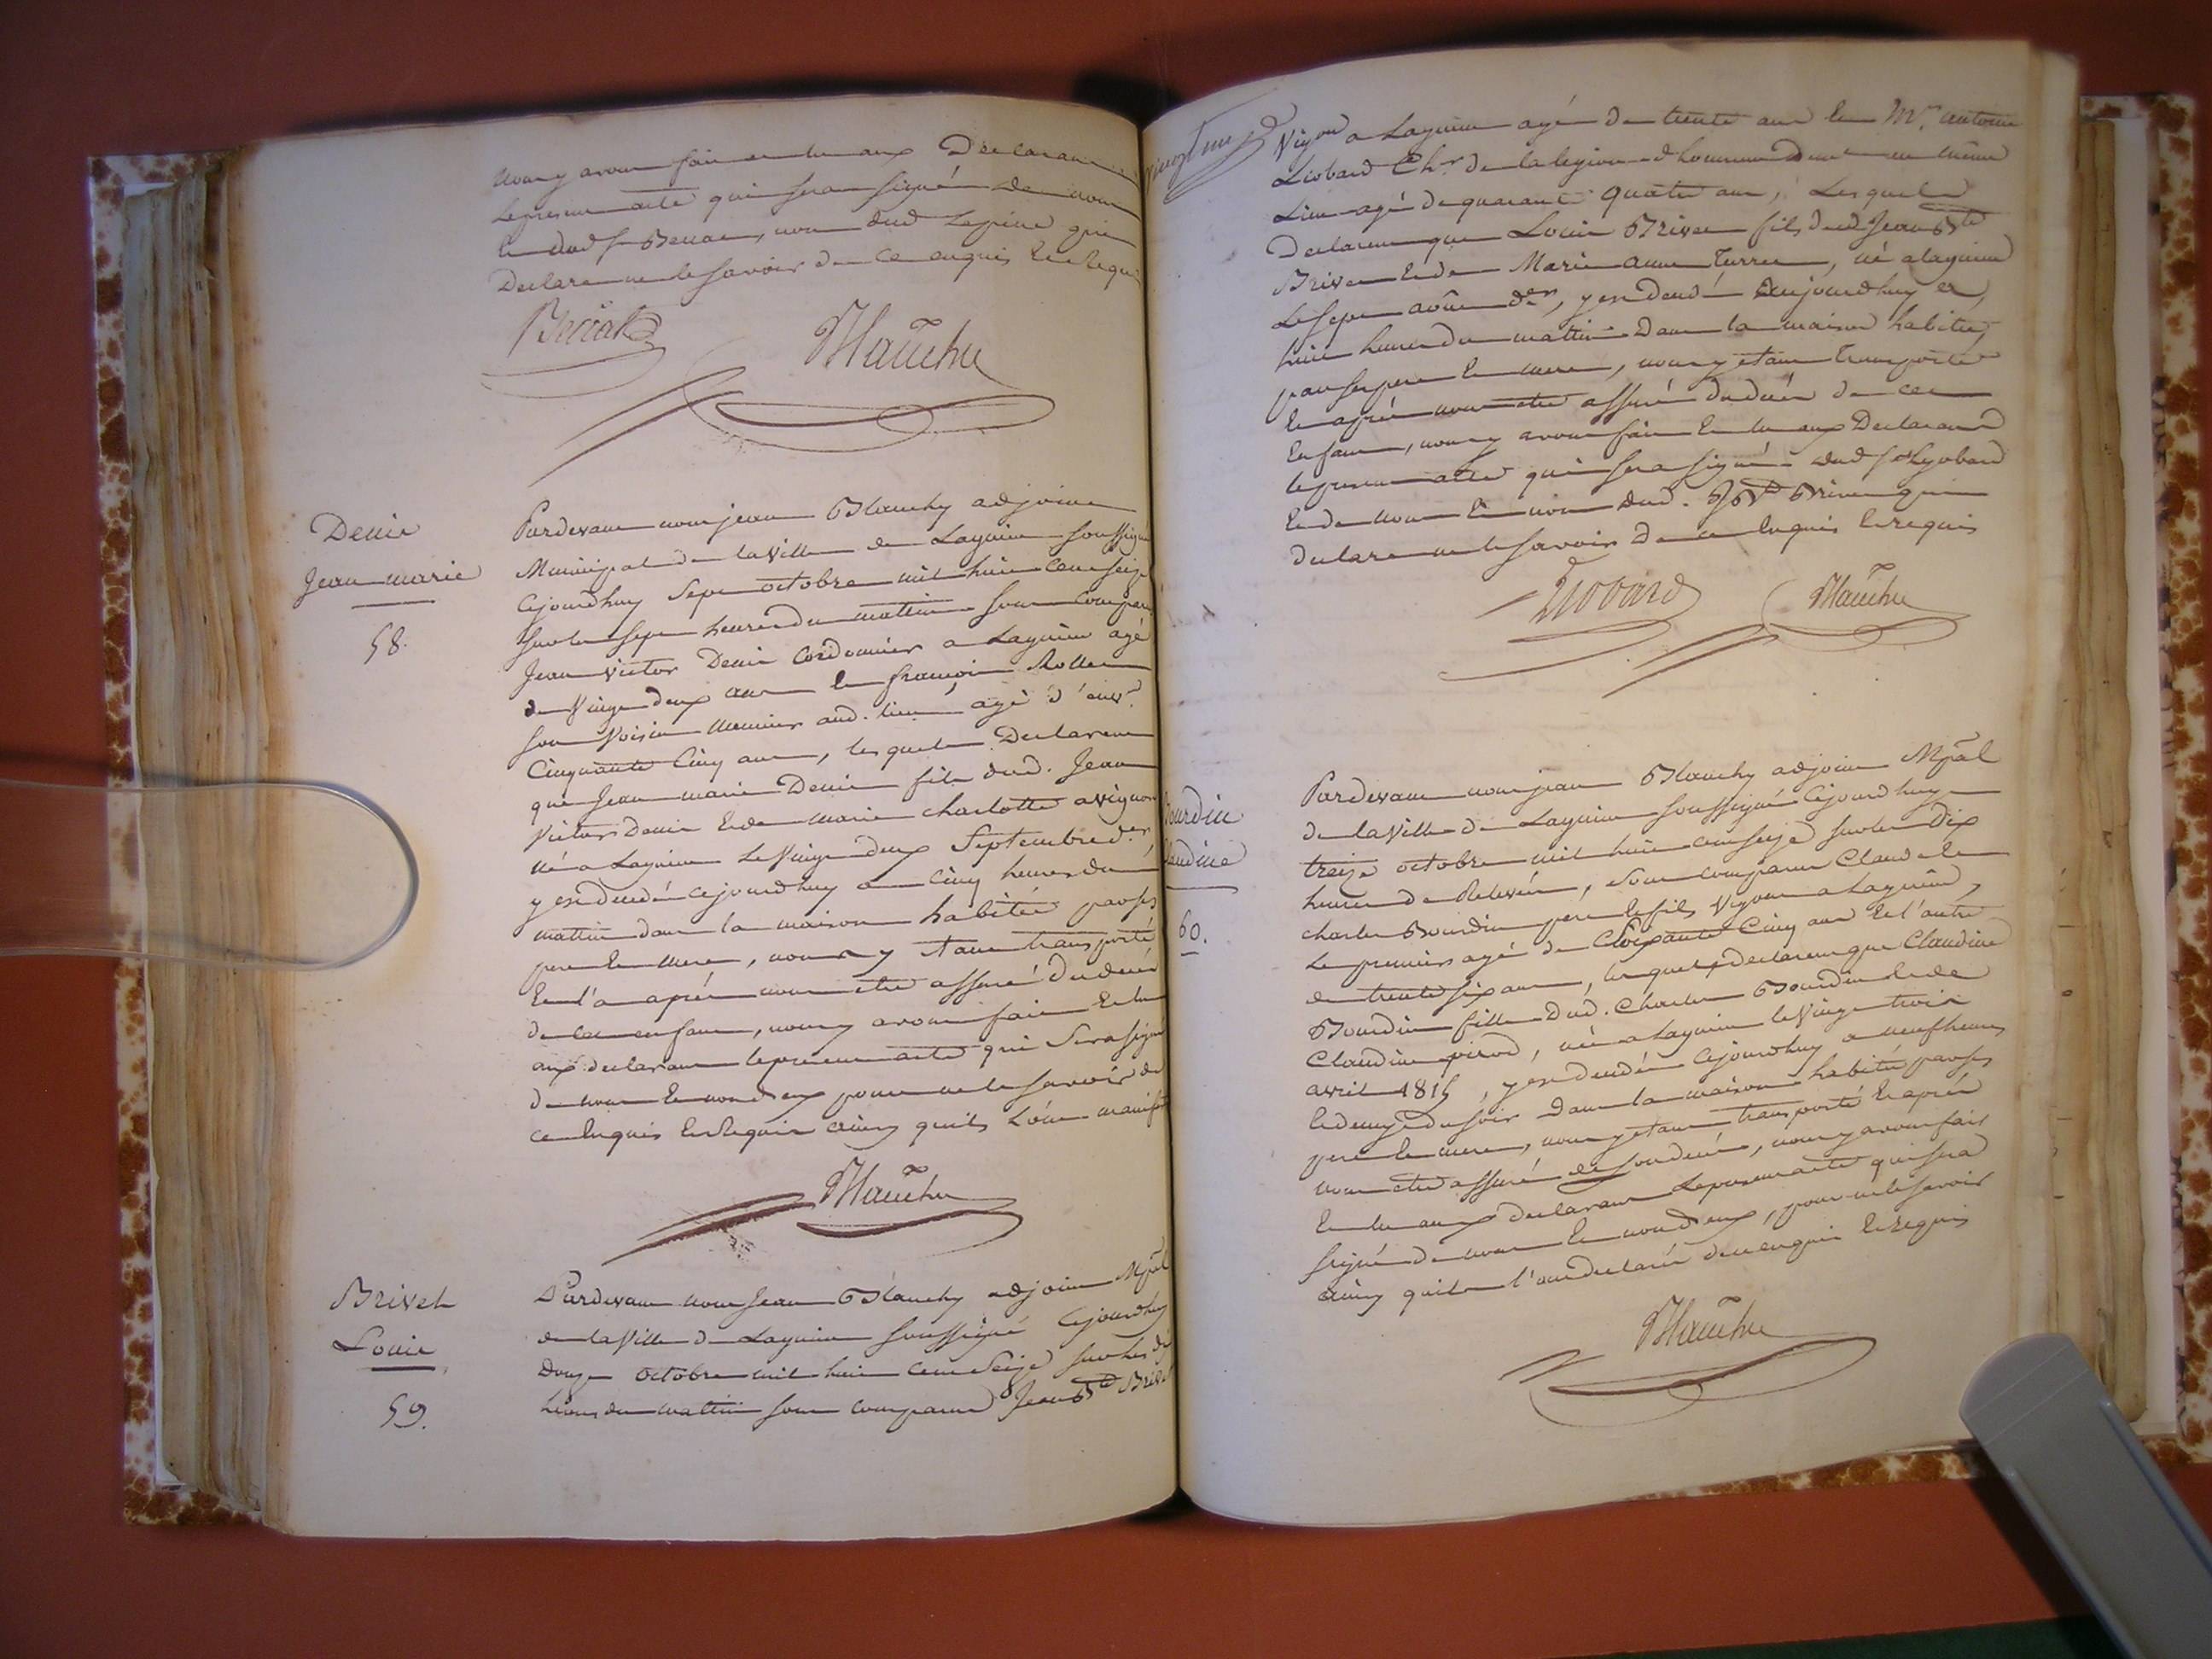 nous y avons fait et lu aux Declarans
le present acte qui sera signé de nous
et dud Sr Berrat, non dud Lepine qui
Declare ne le savoir de ce enquis et Requis
Blanchy
Denis
Jean marie
58.
Pardevant nous jean Blanchy adjoint
Municipal de la Ville de Lagnieu soussigné
Cejourdhuy Sept octobre mil huit Cent seize
sur les sept heures du mattin sont Comparus
Jean Victor Denis Cordonnier a Lagnieu agé
de Vingt deux ans et françois Rollet
son Voisin meunier aud. lieu, agé d'env.
Cinquante Cinq ans, lesquels Declarent
que Jean marie Denis fils dud. Jean
Victor Denis et de marie charlotte avignon
né a Lagnieu le Vingt deux Septembre der,
y est decedé cejourdhuy a Cinq heures du
mattin dans la maison habitée par ses
pere et mere, nous y etant transporté
et l'a aprés nous etre assuré du decés
de cet enfant, nous y avons fait et lu
aux declarans le present acte qui Sera signé
de nous et non d'eux pour ne le savoir de
ce Enquis et Requis ainsy quils L'ont manifesté
Blanchy
Brivet
Louis
59.
Pardevant nous Jean Blanchy adjoint Mpal
de la Ville de Lagnieu soussigné Cejourdhuy
Douze octobre mil huit cent Seize sur les dix
heures du mattin sont comparus Jean Bte Brivet
Vigon a Lagnieu agé de trente ans et Mr. antoine
Liobard Chr. de la legion d'honneur Demt. au même
Lieu agé de quarante quatre ans, Lesquels
Declarent que Louis Brivet fils dud Jean Bte
Brivet et de Marie anne Turrel, né a lagnieu
Le sept aôut der, y est decedé aujourdhuy a
huit heures du mattin Dans la maison habitée
par ses pere et mere, nous y etant transporté
et aprés nous etre assuré du decés de cet
Enfant, nous y avons fait et lu aux Declarans
le present acte qui sera signé dud Sr Lyobard
et de nous et non dud. J Bte Brivet qui
declare ne le savoir de ce Enquis et requis
Liobard Blanchy
Bourdin
Claudine
60.
Pardevant nous jean Blanchy adjoint Mpal
de la Ville de Lagnieu soussigné Cejourdhuy
treize octobre mil huit cent seize sur les Dix
heures de Relevée, sont comparus Claude et
charles Bourdin pere et fils Vigon a Lagnieu,
Le premier agé de Soixante Cinq ans et l'autre
de trente six ans, lesquels declarent que Claudine
Bourdin fille Dud. Charles Bourdin et de
Claudine pirod, née a Lagnieu le Vingt trois
avril 1815, y est decedée Cejourdhuy a neuf heures
et demye du soir dans la maison habitée par ses
pere et mere, nous y etant transporté et aprés
nous etre assuré de son decés, nous y avons fait
et lu aux declarans le present acte qui sera
signé de nous et non d'eux, pour ne le savoir
ainsy quils l'ont declaré de ce enquis et requis
Blanchy